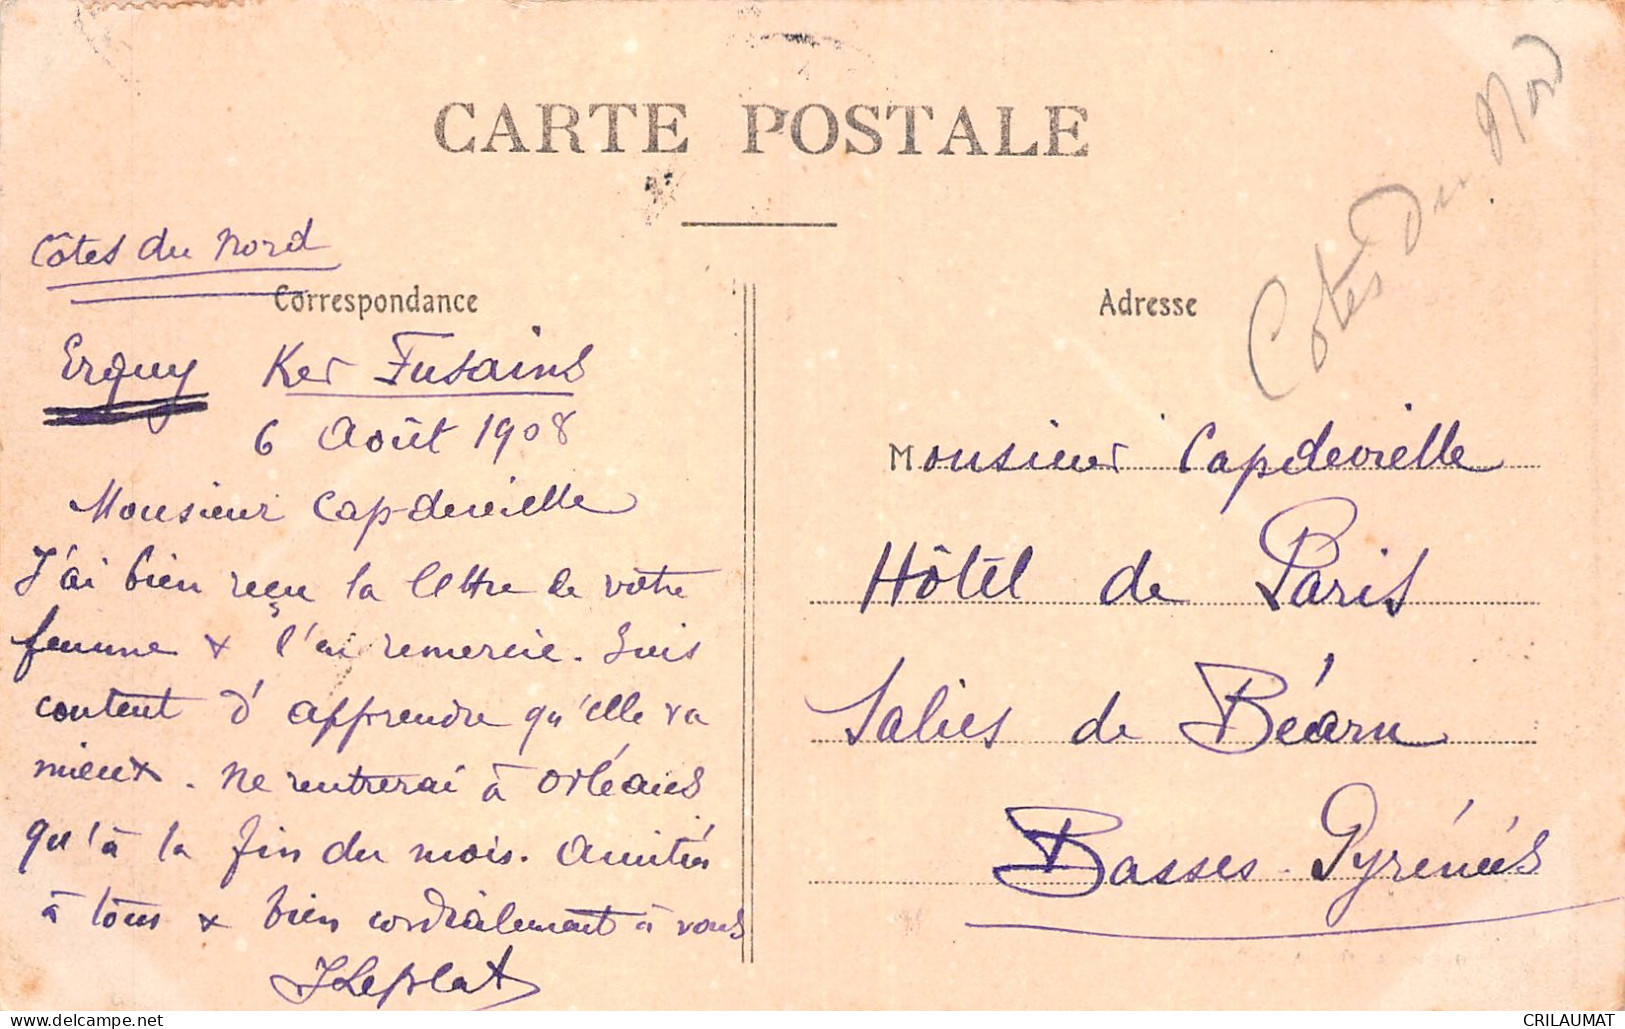 CARTE POSTALE
Côtes Du Nord
Côtes du Nord
Correspondance
Erquy Ker Fusains
6 Août 1908
Monsieur Capdevielle
J'ai bien reçu la lettre de votre
femme & l'en remercie. Suis
content d'apprendre qu'elle va
mieux. Ne rentrerai à Orléans
qu'à la fin du mois. Amitiés
à tous & bien cordialement à vous
JLeplat
Adresse
Monsieur Capdevielle
Hôtel de Paris
Salies de Béarn
Basses-Pyrénées
delcampe.net
CRILAUMAT